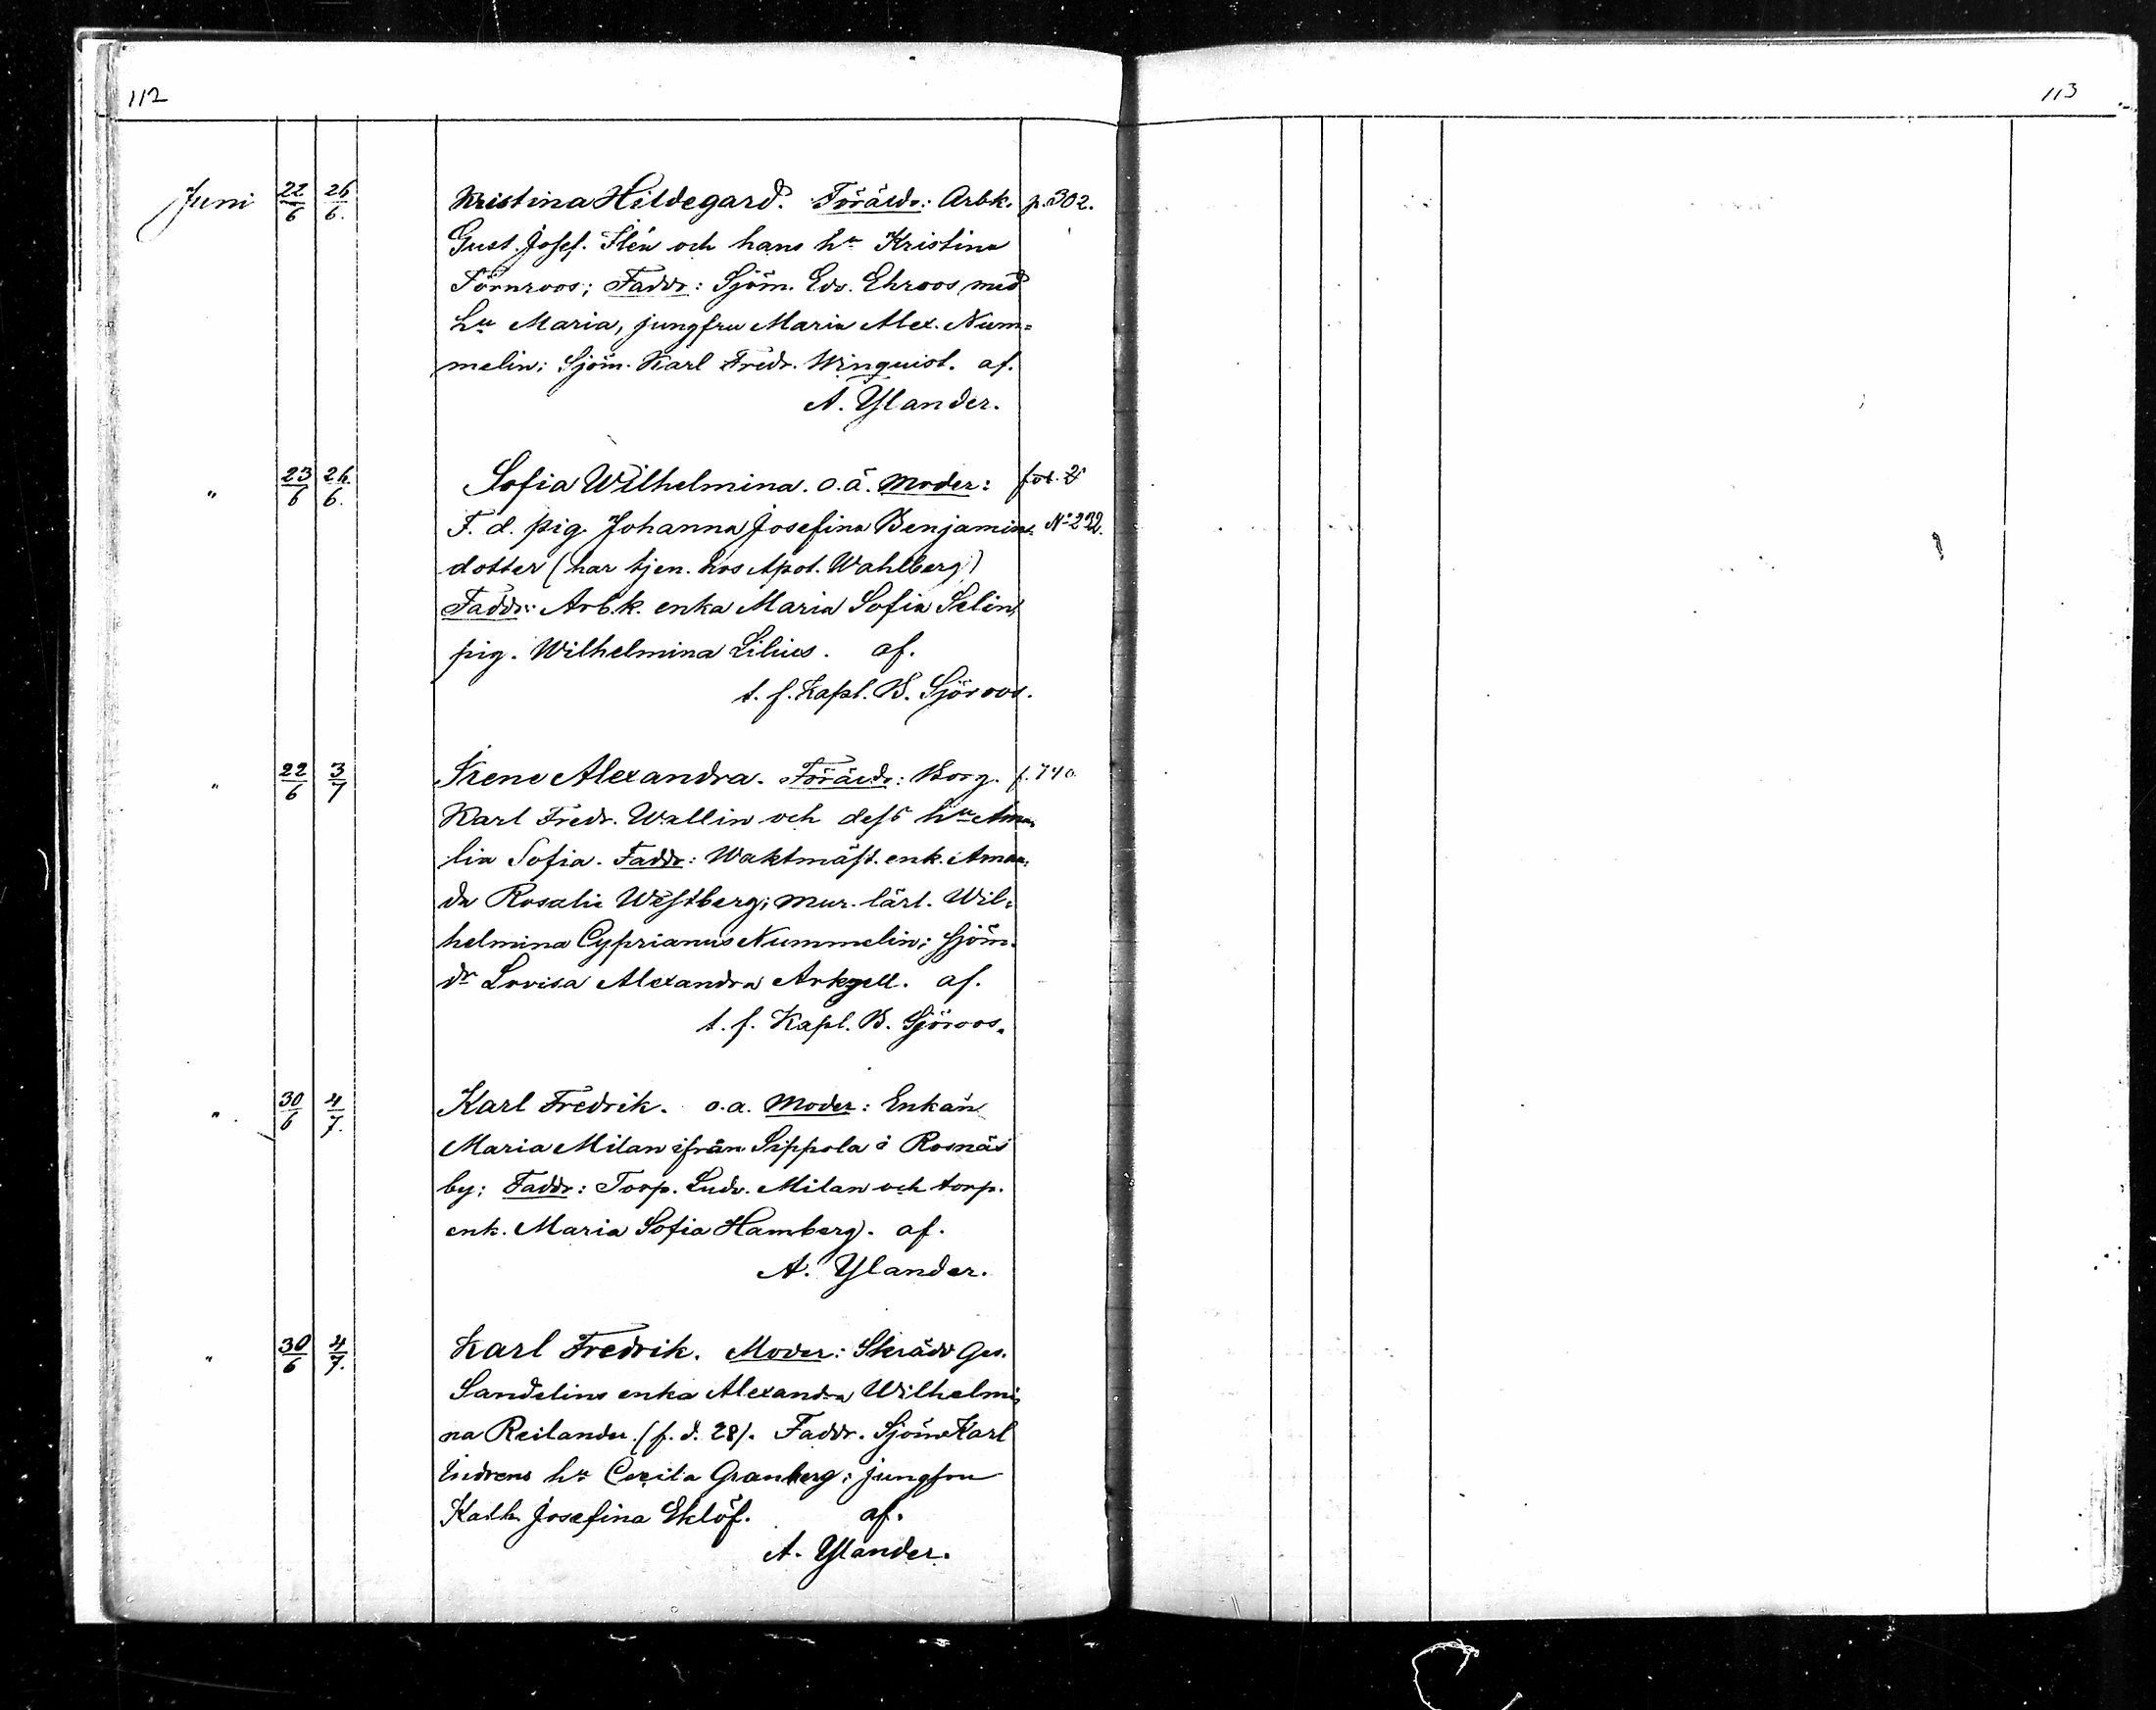 112
113
Juni 22/6 26/6. Kristina Hildegard. Föräldr: Arbk. p. 302.
Gust. Josef. Flén och hans hu Kristina
Törnroos; Faddr: Sjöm. Edv. Ehroos med
hu Maria, jungfru Maria Alex. Num=
melin; Sjöm. Karl Fredr. Winquist. af.
A. Ylander.
" 23/6 26/6. Sofia Wilhelmina. o.ä. Moder:
F. d. pig. Johanna Josefina Benjamins= No 232.
dotter (har tjen. hos Apot. Wahlberg)
Faddr: Arb.k. enka Maria Sofia Selin,
pig. Wilhelmina Lilius. af.
t. f. Kapl. B. Sjöroos.
" 22/6 3/7 Irene Alexandra. Föräldr: Borg. f. 740
Karl Fredr. Wallin och dess hu Ama=
lia Sofia. Faddr: Waktmäst. enk. Aman=
da Rosalie Westberg; mur. lärl. Wil=
helmina Cyprianus Nummelin; Sjöm.
dr Lovisa Alexandra Arkzell. af.
t. f. Kapl. B. Sjöroos.
" 30/6 4/7. Karl Fredrik. o.a. Moder: Enkan
Maria Milan ifrån Sippola i Rosnäs
by; Faddr: Torp. Ludv. Milan och torp.
enk. Maria Sofia Hamberg. af.
A. Ylander.
" 30/6 4/7. Karl Fredrik. Moder: Skrädd Ges.
Sandelins enka Alexandra Wilhelmi=
na Reilander. (f. d. 28). Faddr. Sjöm Karl
Lindrens hu Cecilia Granberg; jungfru
Kath. Josefina Eklöf. af.
A. Ylander.